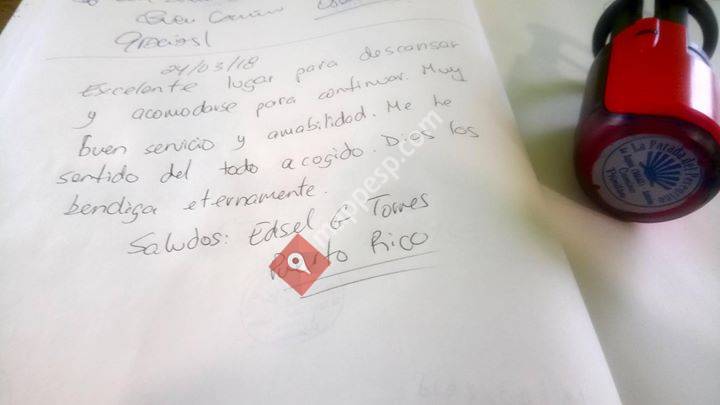 Buen Camino
Gracias!
24/03/18
Excelente lugar para descansar
y acomodarse para continuar. Muy
buen servicio y amabilidad. Me he
sentido del todo acogido. Dios los
bendiga eternamente.
Saludos: Edsel G Torres
Puerto Rico
mappesp.com
La Parada del Peregrino